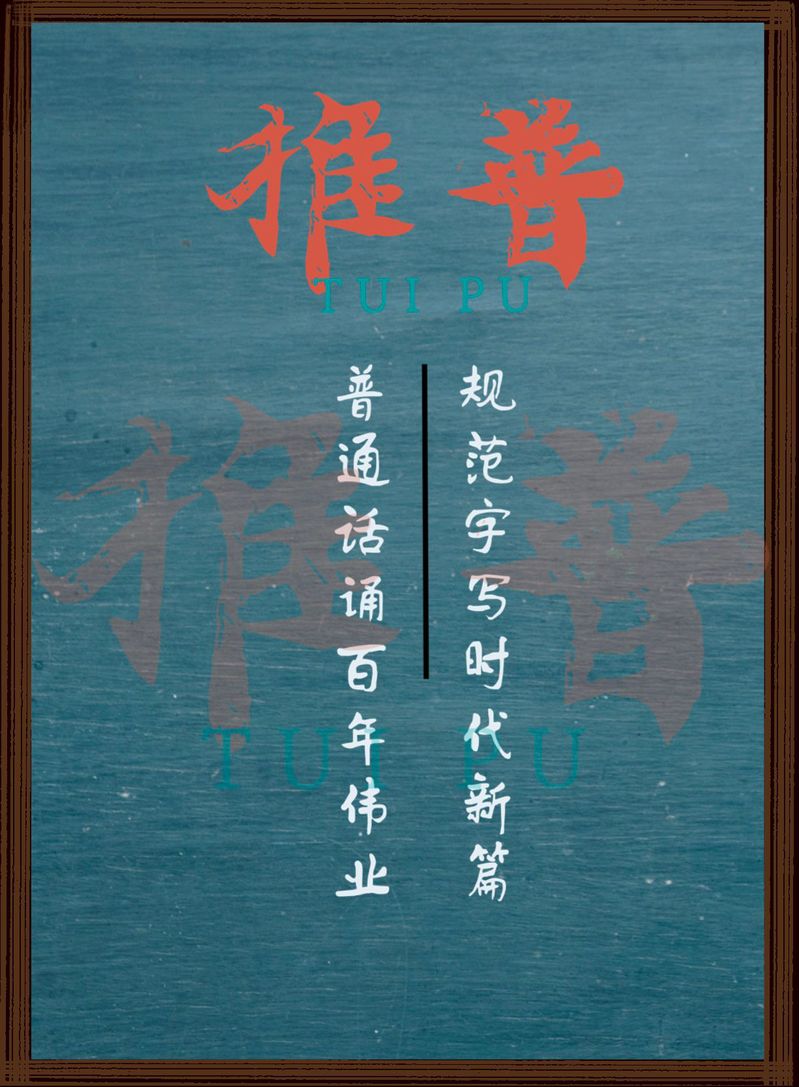 推普
TUI PU
普通话诵百年伟业
规范字写时代新篇
推普
TUI PU